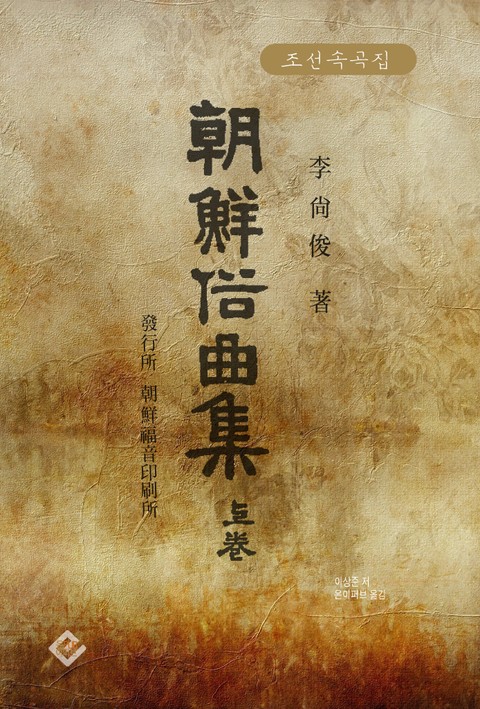 조선속곡집
李尙俊 著
朝鮮俗曲集 上卷
發行所 朝鮮福音印刷所
이상준 저
온이퍼브 옮김